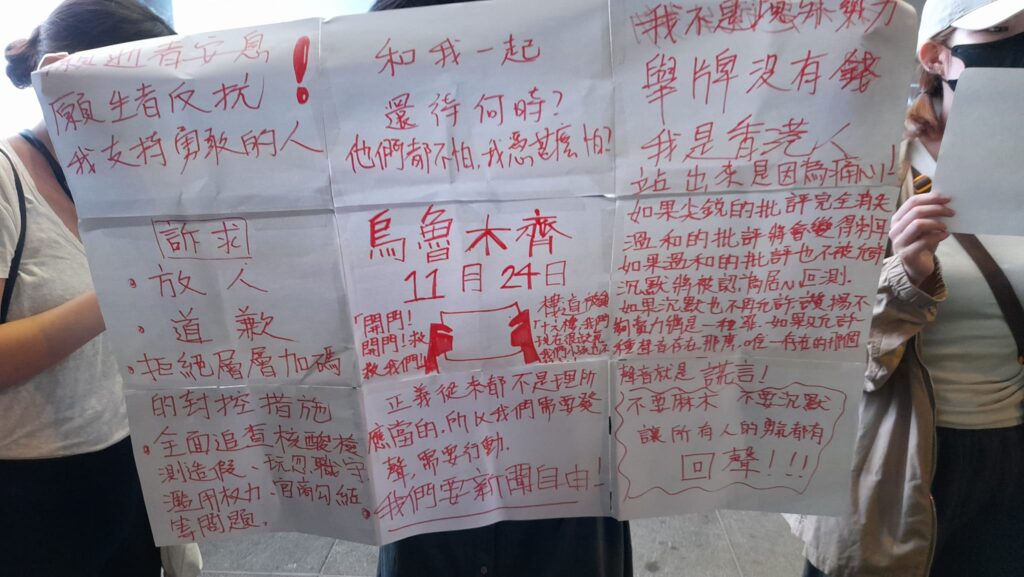 願逝者安息!
願生者反抗
我支持勇敢的人
和我一起
還待何時?
他們都不怕,我憑甚麼怕?
我不是境外勢力
舉牌沒有錢
我是香港人
站出來是因為痛心!
訴求
放人
道歉
拒絕層層加碼
的封控措施
全面追查核酸檢
測造假、玩忽職守
濫用權力、官商勾結
等問題.
烏魯木齊
11月24日
「開門!
開門!救
救我們!」
「十六樓,我們
現在很
我們
正義從來都不是理所
應當的.所以我們需要發
聲,需要行動.
我們要新聞自由!
如果尖銳的批評完全消失
溫和的批評將會變得刺耳
如果溫和的批評也不被允許
沉默將被認為居心叵測.
如果沉默也不再允許 讚揚不
夠賣力將是一種罪.如果只允許一
種聲音存在 那麼,唯一存在的那個
聲音就是 謊言!
不要麻木 不要沉默
讓所有人的勇氣都有
回聲!!!